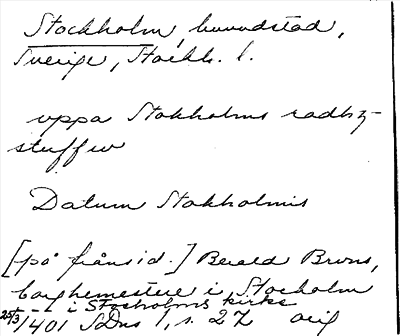 Stockholm, huvudstad,
Sverige, Stockh. l.
uppa Stokholms radhz-
stuffw
Datum Stokholmis
[på frånsid.] Berald Bruns,
borghemestere i Stocholm
i Stocholms kirke
25/3 1401 SDns 1, s. 27 orig